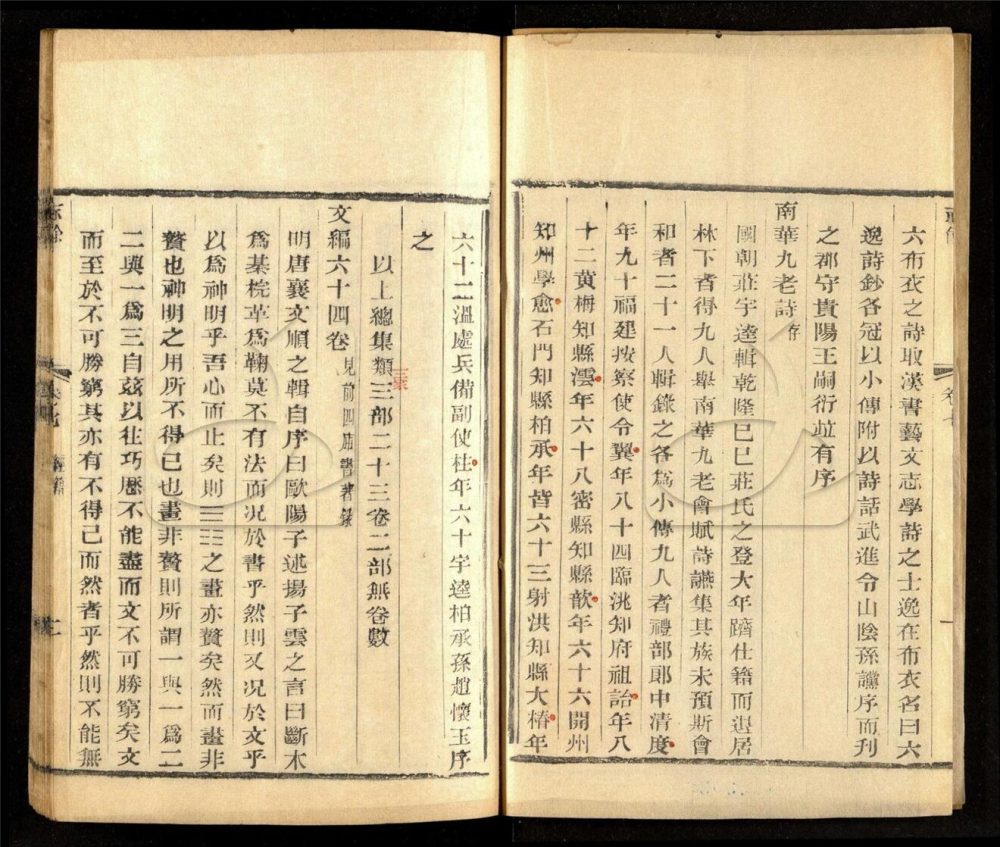 六布衣之詩取漢書藝文志學詩之士逸在布衣名曰六
逸詩鈔各冠以小傳附以詩話武進令山陰孫讜序而刋
之郡守貴陽王嗣衍竝有序
南華九老詩存
國朝莊宇逵輯乾隆己巳莊氏之登大年躋仕籍而退居
林下者得九人舉南華九老會賦詩讌集其族未預斯會
和者二十一人輯錄之各爲小傳九人者禮部郎中清度
年九十福建按察使令翼年八十四臨洮知府祖詒年八
十二黃梅知縣澐年六十八密縣知縣歆年六十六開州
知州學愈石門知縣柏承年皆六十三射洪知縣大椿年
六十二溫處兵備副使柱年六十宇逵柏承孫趙懷玉序
之
以上總集類三部二十三卷二部無卷數
文編六十四卷見前四庫書著錄
明唐襄文順之輯自序曰歐陽子述揚子雲之言曰斷木
爲棊梡革爲鞠莫不有法而况於書乎然則又况於文乎
以爲神明乎吾心而止矣則三三之畫亦贅矣然而畫非
贅也神明之用所不得已也畫非贅則所謂一與一爲二
二與一爲三自茲以往巧厯不能盡而文不可勝窮矣文
而至於不可勝窮其亦有不得已而然者乎然則不能無
卷七